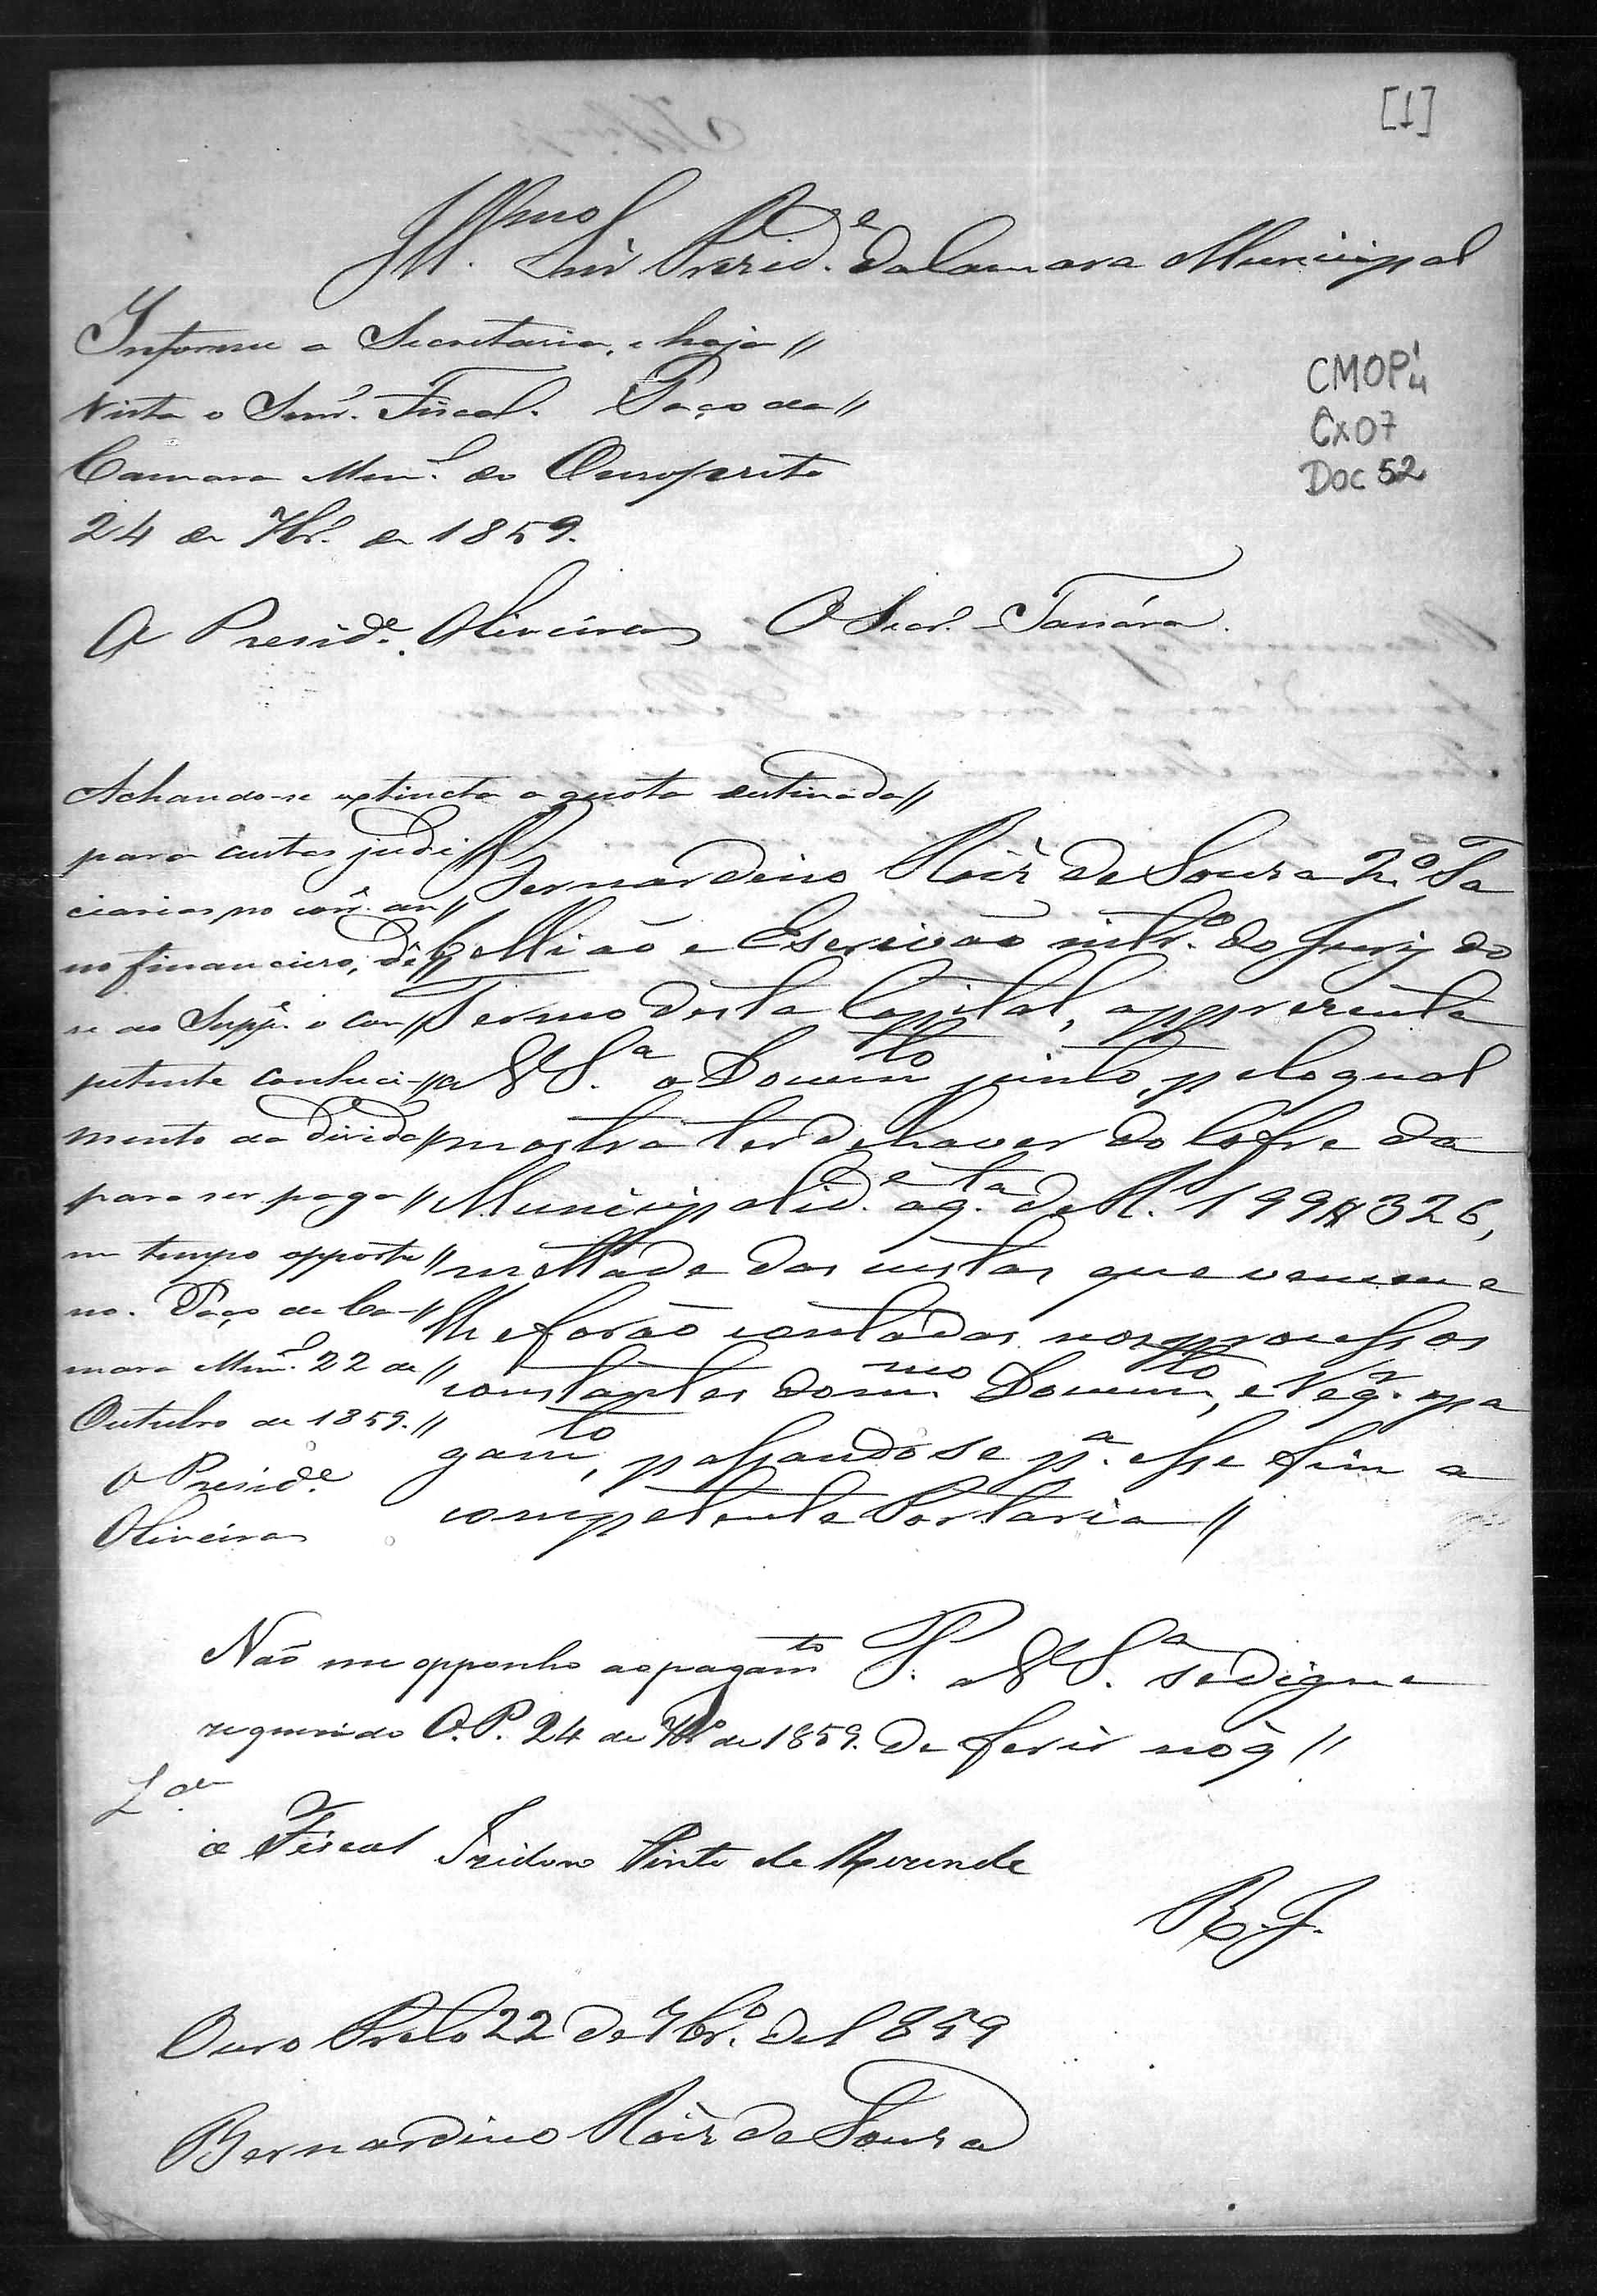 [1]
Ill.mo Snr Prezid.e da Camara Municipal
CMOP
Cx 07
Doc 52
Informe a Secretaria, e haja //
vista o Senr. Fiscal. Paço da //
Camara Mun.l do Ouropreto
24 de 7br.o de 1859.
O Presid.e Oliveira O Secr.
Achando-se extincta a quota destinada //
para custas judi //
ciarias no corr.e an //
no financeiro, dê //
se ao Supp.e o com //
petente conheci- //
mento da divida //
para ser paga //
em tempo opportu //
no. Paço da Ca- //
mara Mun.l 22 de //
Outubro de 1859. //
O Presid.e
Oliveira
Bernardino Roiz de Souza 2.o Ta
bellião e Escrivão intr.o do Jury do
Termo desta Capital, apprezenta
a V S.a o Docum.to junto, pelo qual
mostra ter de haver do Cofre da
Municipalid.e a q.ta de R.s 199$326,
mettade das custas que venceu e
lhe forão contadas nos processos
constantes do mm.o Docum.to, e req.r o pa
gam.to, passando se p.a esse fim a
competente Portaria //
P. a V S.a se digne
deferir no q //
Não me opponho ao pagam.to
requerido O. P. 24 de 7br.o de 1859.
o Fiscal Izidoro Pinto de Rezende
R. J.
Ouro Preto 22 de 7br.o de 1859
Bernardino Roiz de Souza